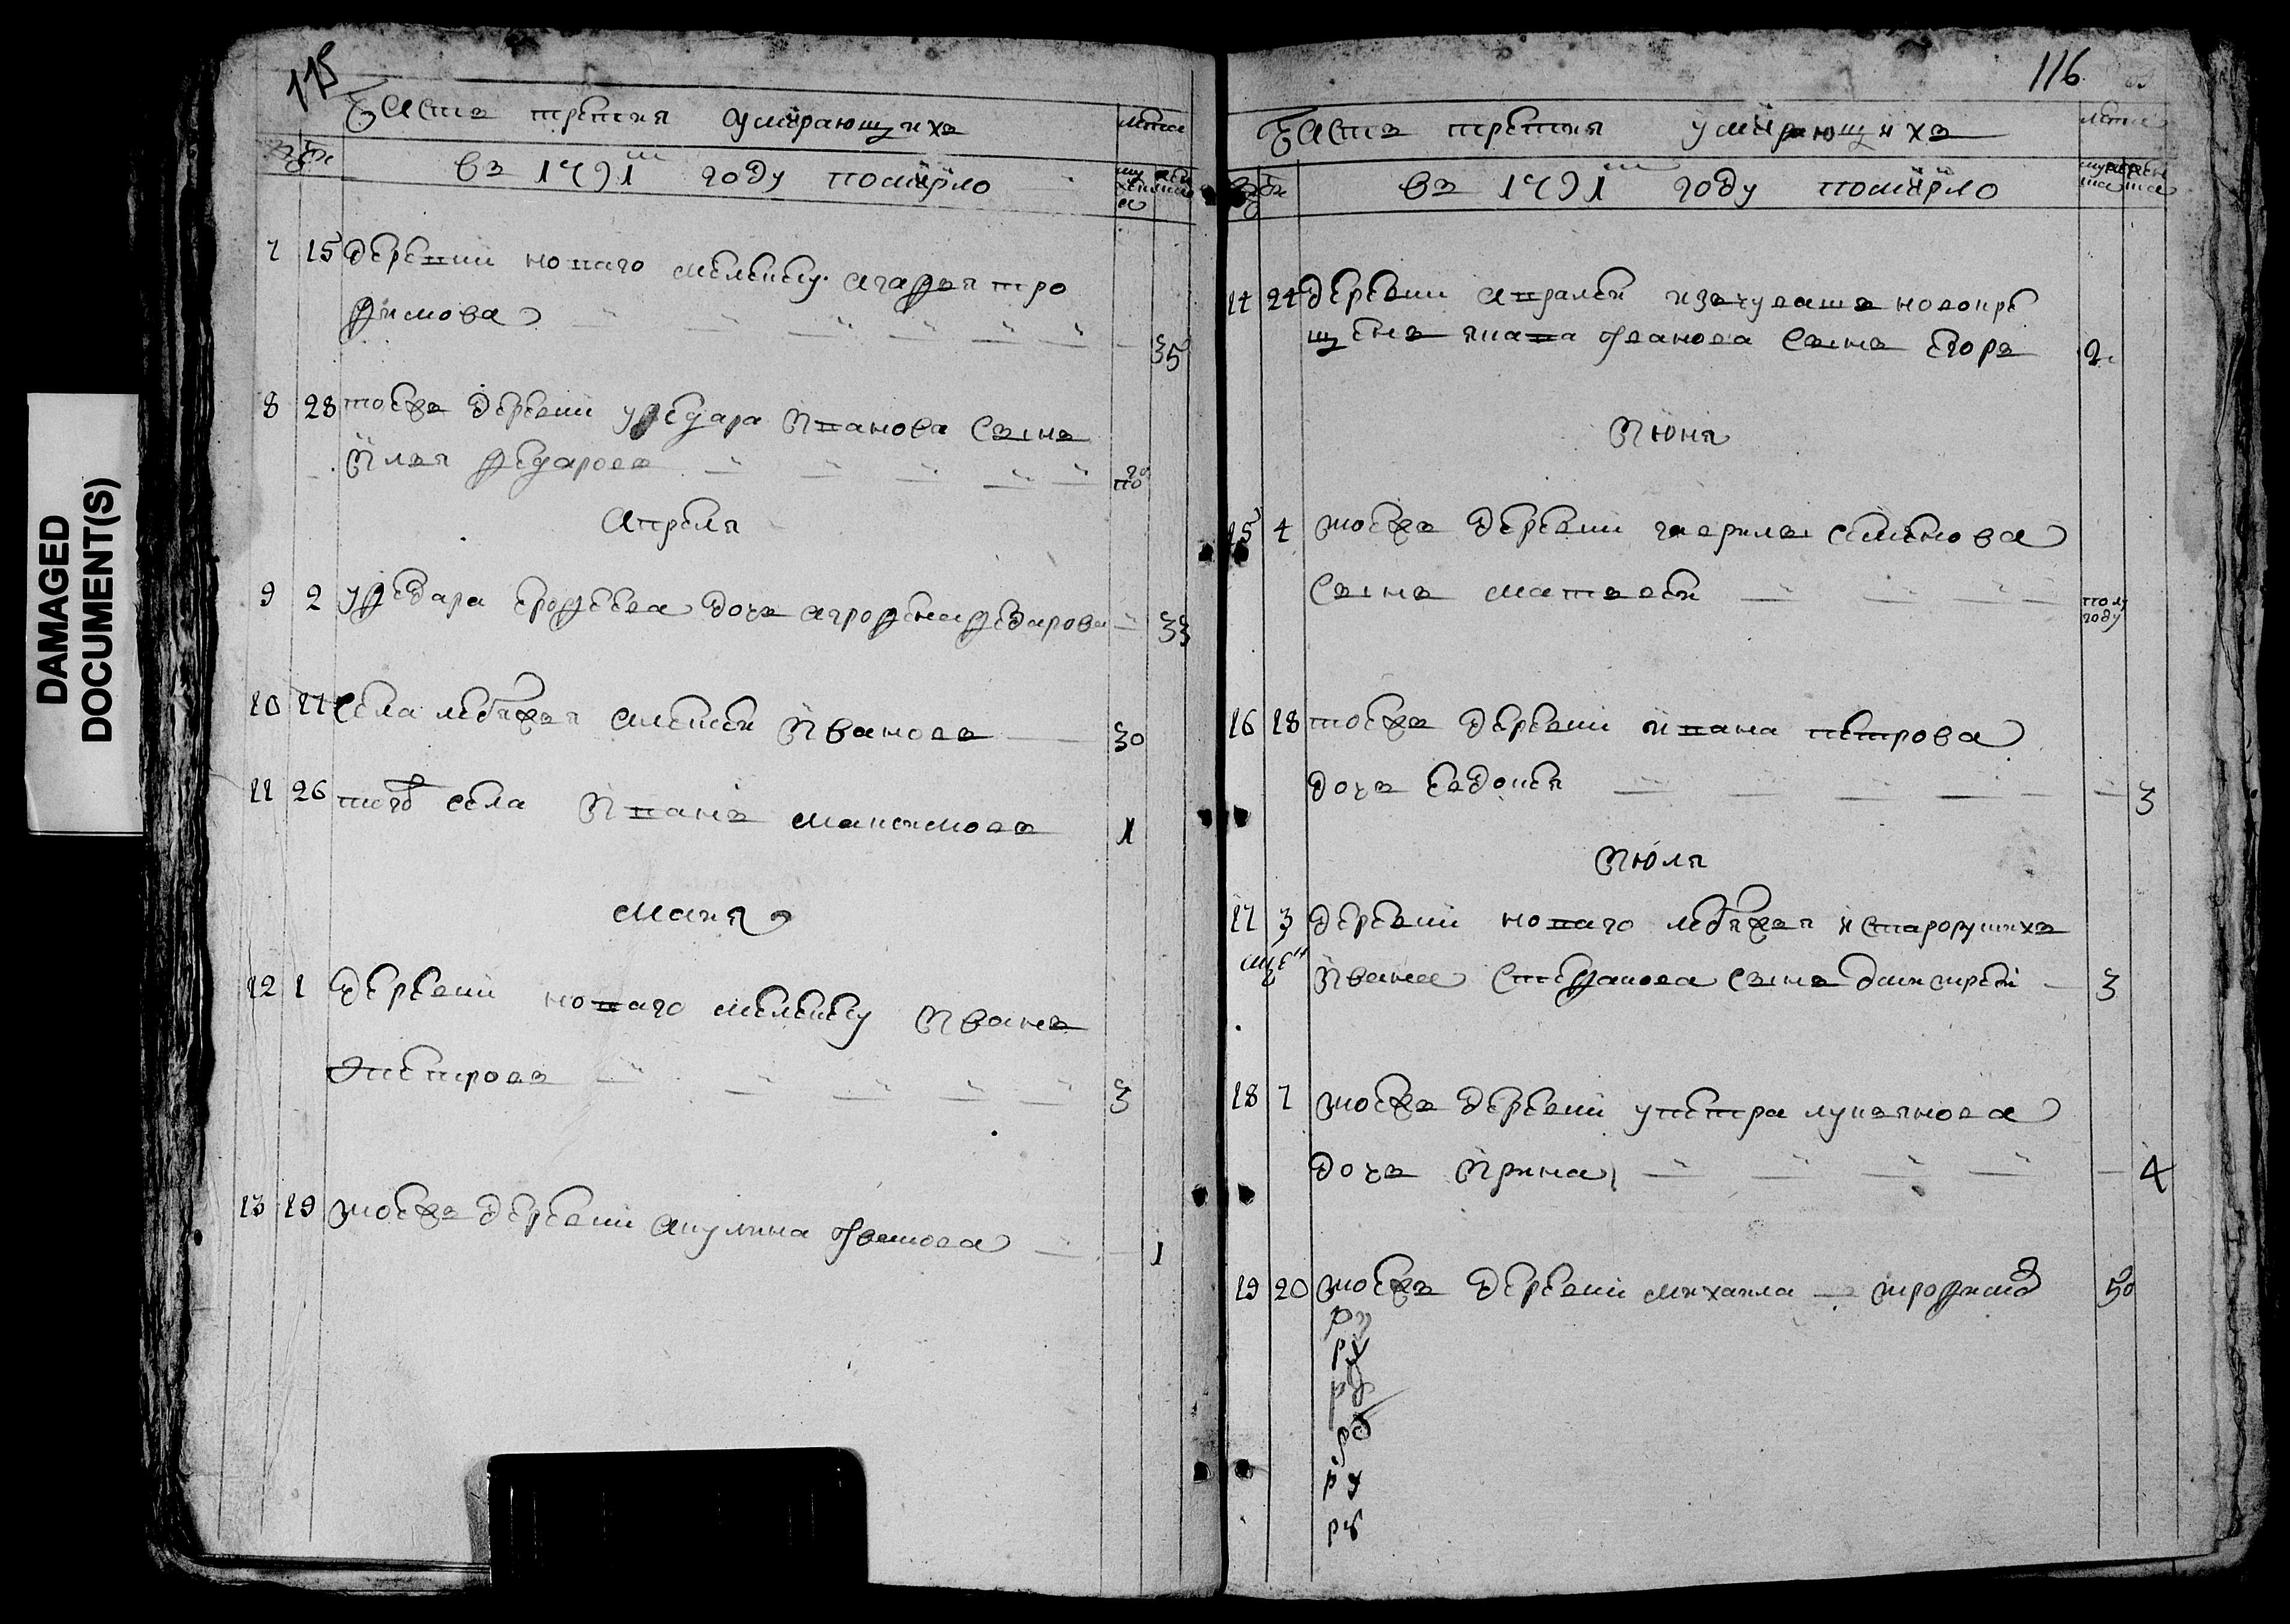 DAMAGED
DOCUMENT(S)
115
Часть третия умирающихъ
лѣта
въ 1791м году помѣрло
7 15 деревни новаго мелекесу агафья тро
фимова 35
8 28 тоежъ деревни у федара иванова сынъ
илья федаровъ
Апреля
9 2 у федара ерофеева дочь агрофена федарова 33
10 17 села лебяжья алексей Ивановъ 30
11 26 тогож села Иванъ максимовъ 1
Маия
12 1 деревни новаго мелекесу Иванъ
Петровъ 3
13 19 тоежъ деревни акулина Иванова 1
116
Часть третия умирающихъ
лѣта
въ 1791м году помѣрло
14 24 деревни из чувашъ новокре
щенъ ивана иванова сынъ егоръ 2
Июня
15 4 тоежъ деревни гаврилы семенова
сынъ матвей полу
году
16 18 тоежъ деревни ивана петрова
дочь евдокея 3
Июля
17 3 деревни новаго лебяжья и старорускихъ
Ивана Стефанова сынъ димитрей 3
18 7 тоежъ деревни у петра лукьянова
дочь Ирина 4
19 20 тоежъ деревни михаила трофимов 50